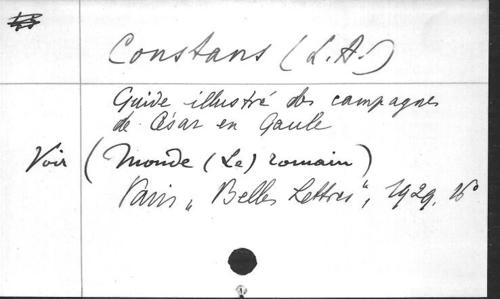 Constans (L.A.)
Guide illustré des campagnes
de César en Gaule
Voir (Monde (Le) romain)
Paris „Belles Lettres“, 1929, 16°